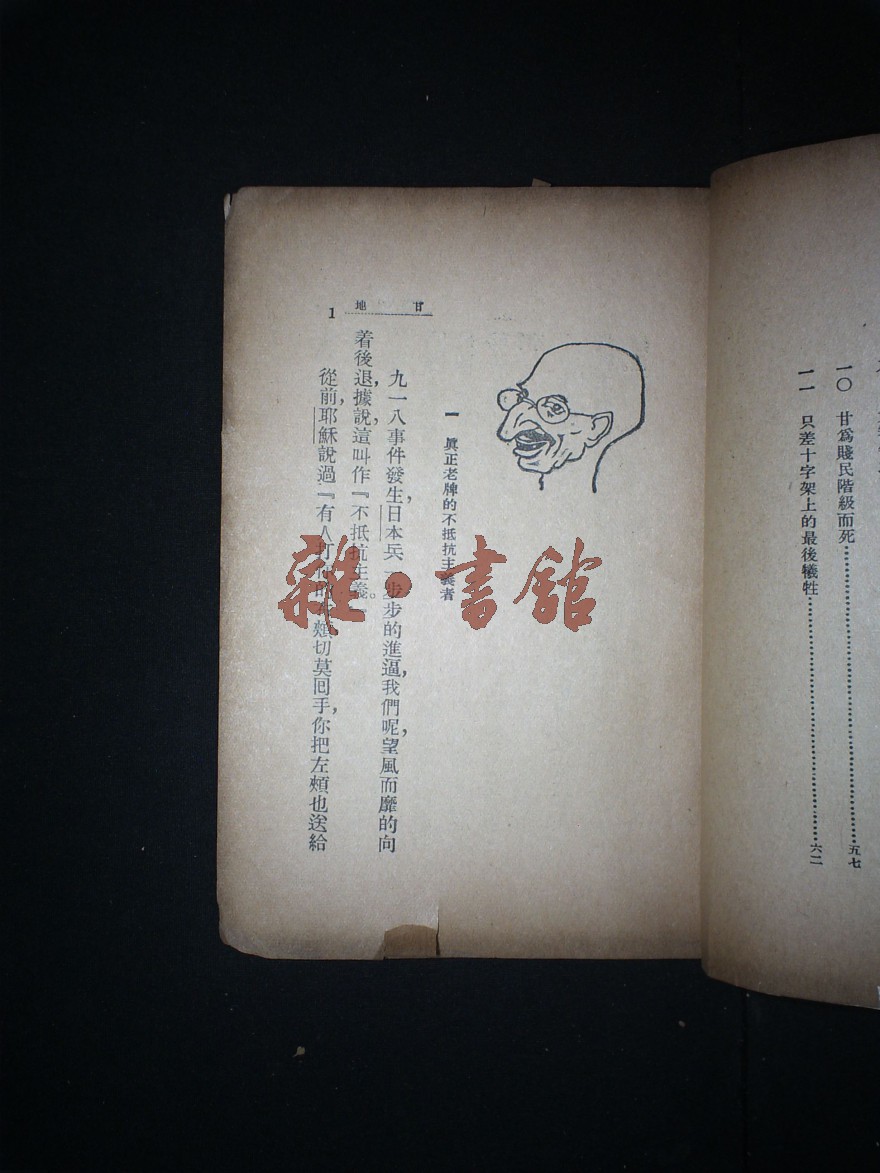 一〇 甘爲賤民階級而死……五七
一一 只差十字架上的最後犧牲……六二
甘地
1
一 眞正老牌的不抵抗主義者
九一八事件發生,日本兵一步步的進逼,我們呢,望風而靡的向
着後退,據說,這叫作『不抵抗主義。』
從前,耶穌說過『有人打你的右頰切莫囘手,你把左頰也送給
雜·書館